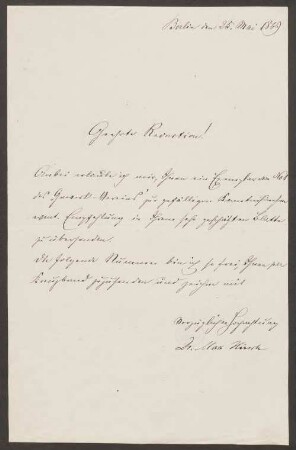 Berlin den 26. Mai 1869
Geehrte Redaction!
Anbei erlaube ich mir, Ihnen ein Exemplar der No 1
des Gewerk-Vereins zu gefälliger Kenntnißnahme
event. Empfehlung in Ihrem sehr geschätzten Blatte
zu übersenden.
Die folgende Nummern bin ich so frei, Ihnen per
Kreuzband zuzusenden und zeichne mit
vorzüglicher Hochachtung
Dr. Max Hirsch